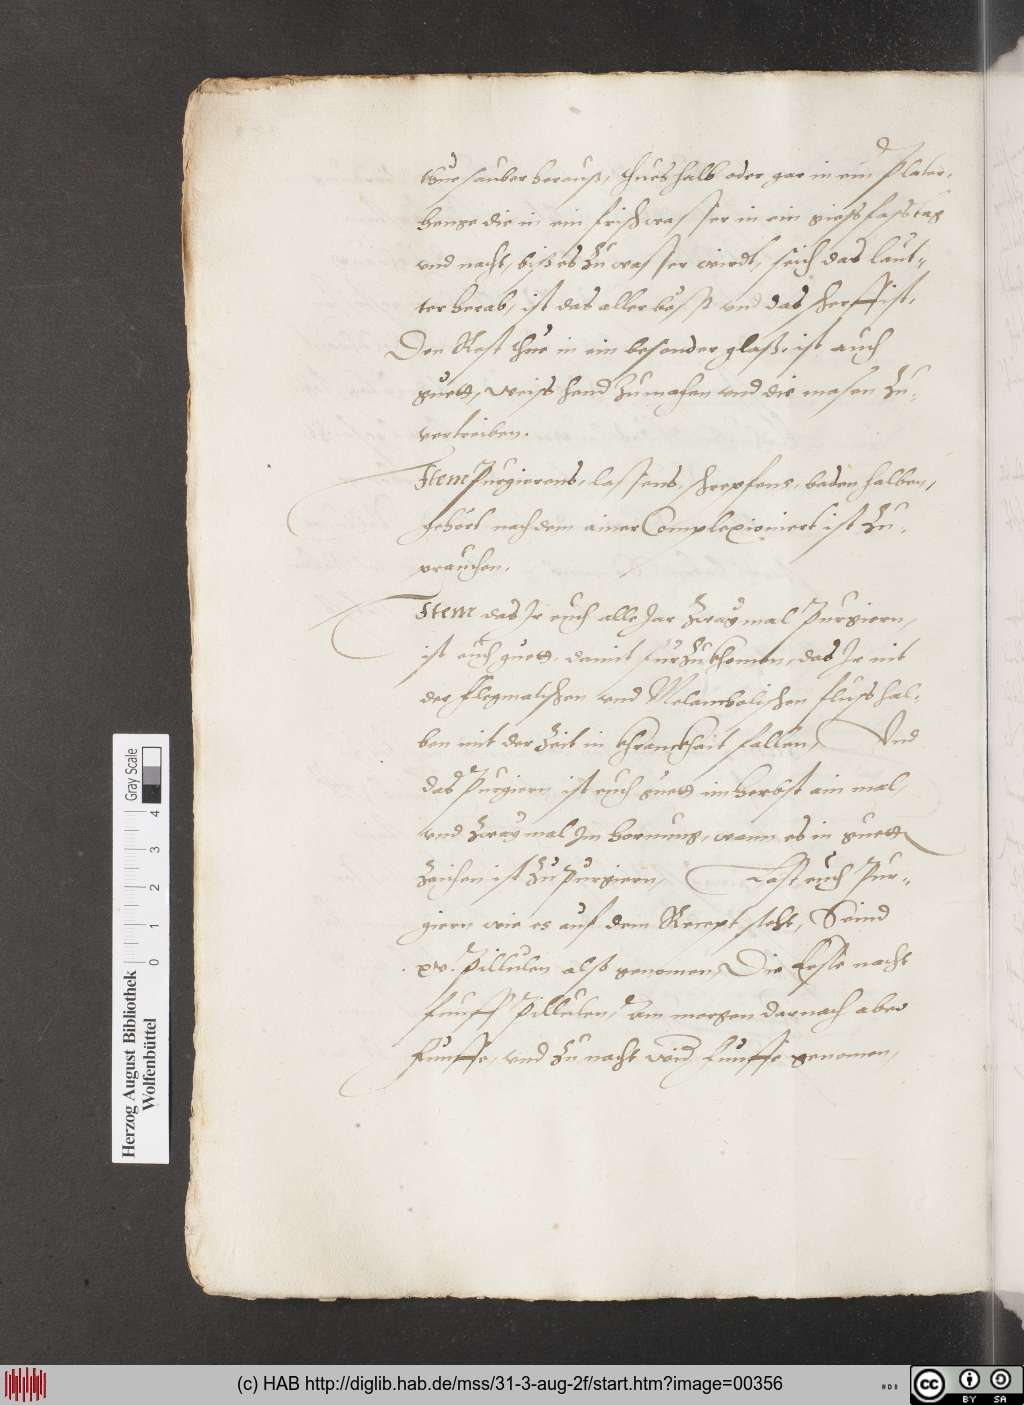 thue sauber herauß, thues halb oder gar in ein Plater,
henge die in ein frisch wasser in ein giessfass tag
und nacht, biss es zu wasser wirdt, seich das laut-
ter herab, ist das aller böst und das scherffist,
Den Rest thue in ein besonder glass, ist auch
guett, weiss hend zumachen und die masen zu-
vertreiben.
Item Purgierens, lassens, schrepfens, baden halben,
gehört nach dem ainer Complexioniert ist zu-
prauchen.
Item das Ir euch alle Jar zwaymal Purgiern,
ist auch guett, damit fürzukhomen, das Ir nit
der flegmatischen und Melancolischen fluss hal-
ben mit der Zeit in khranckhait fallen, Und
das Purgiern ist euch guett im herbst ain mal,
und zway mal Im hornung, wann es in guett
Zaichen ist zu Purgiern, Last euch Pur-
giern wie es auf dem Recept steht, Seind
xv. Pillulen also genomen, Die Erste nacht
funff Pillulen, Am morgen darnach aber
funffe, und zu nacht wider funffe genomen,
Herzog August Bibliothek
Wolfenbüttel
0 1 2 3 4
Gray Scale
(c) HAB http://diglib.hab.de/mss/31-3-aug-2f/start.htm?image=00356
WDB
cc BY SA